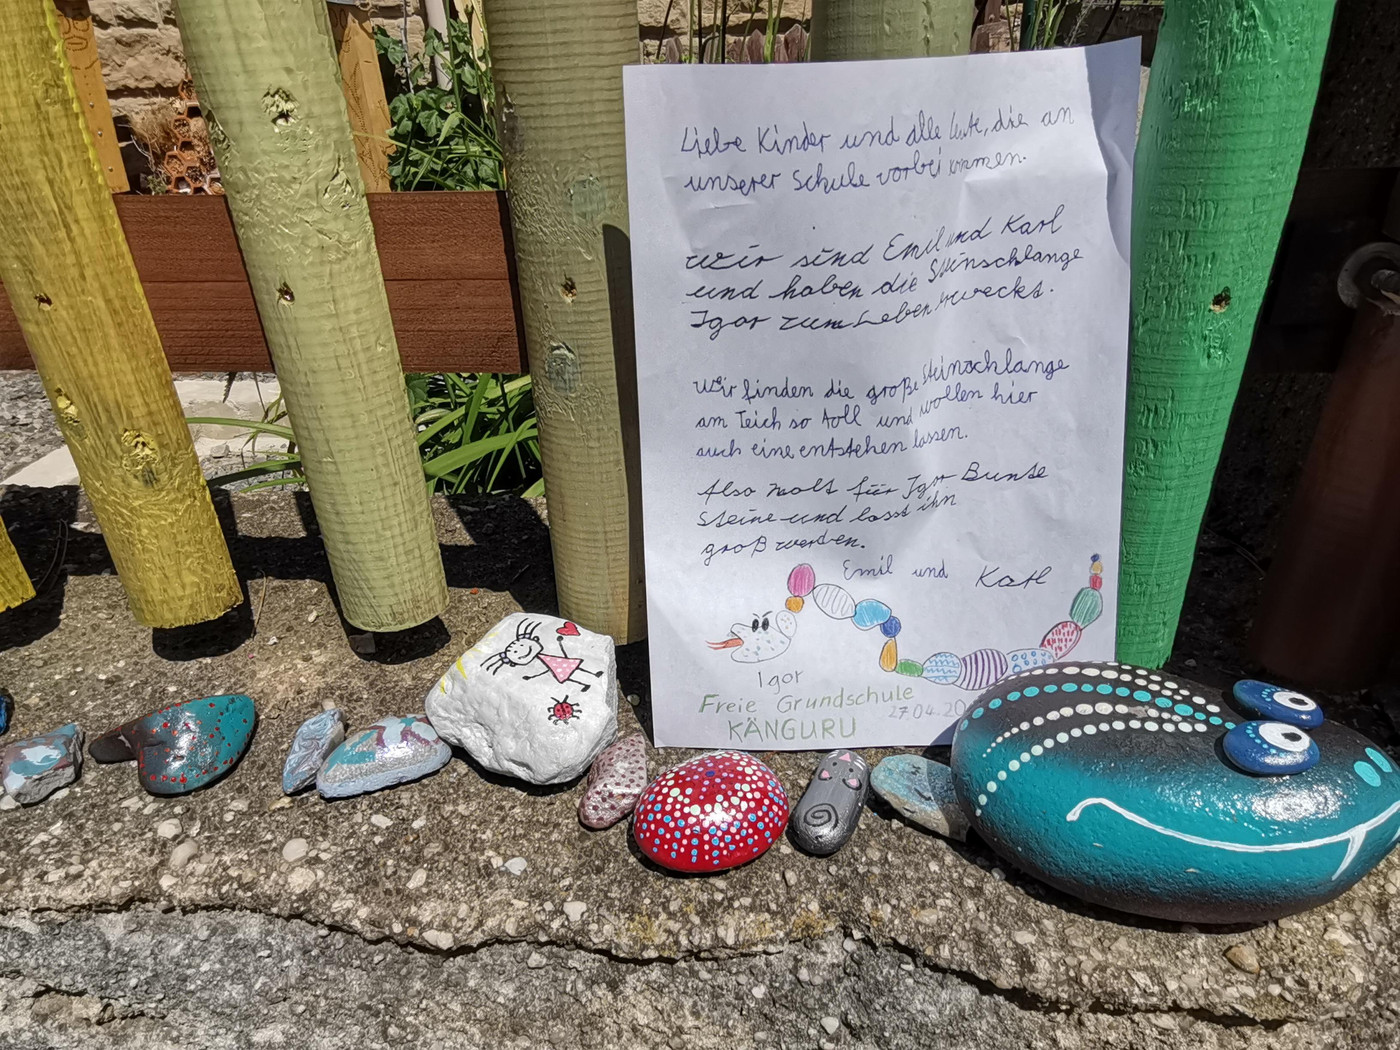 Liebe Kinder und alle Leute, die an
unserer Schule vorbei kommen.
Wir sind Emil und Karl
und haben die Steinschlange
Igor zum Leben erweckt.
Wir finden die große Steinschlange
am Teich so toll und wollen hier
auch eine entstehen lassen.
Also malt für Igor Bunte
Steine und lasst ihn
groß werden.
Emil und Karl
Igor
Freie Grundschule
KÄNGURU
27.04.20